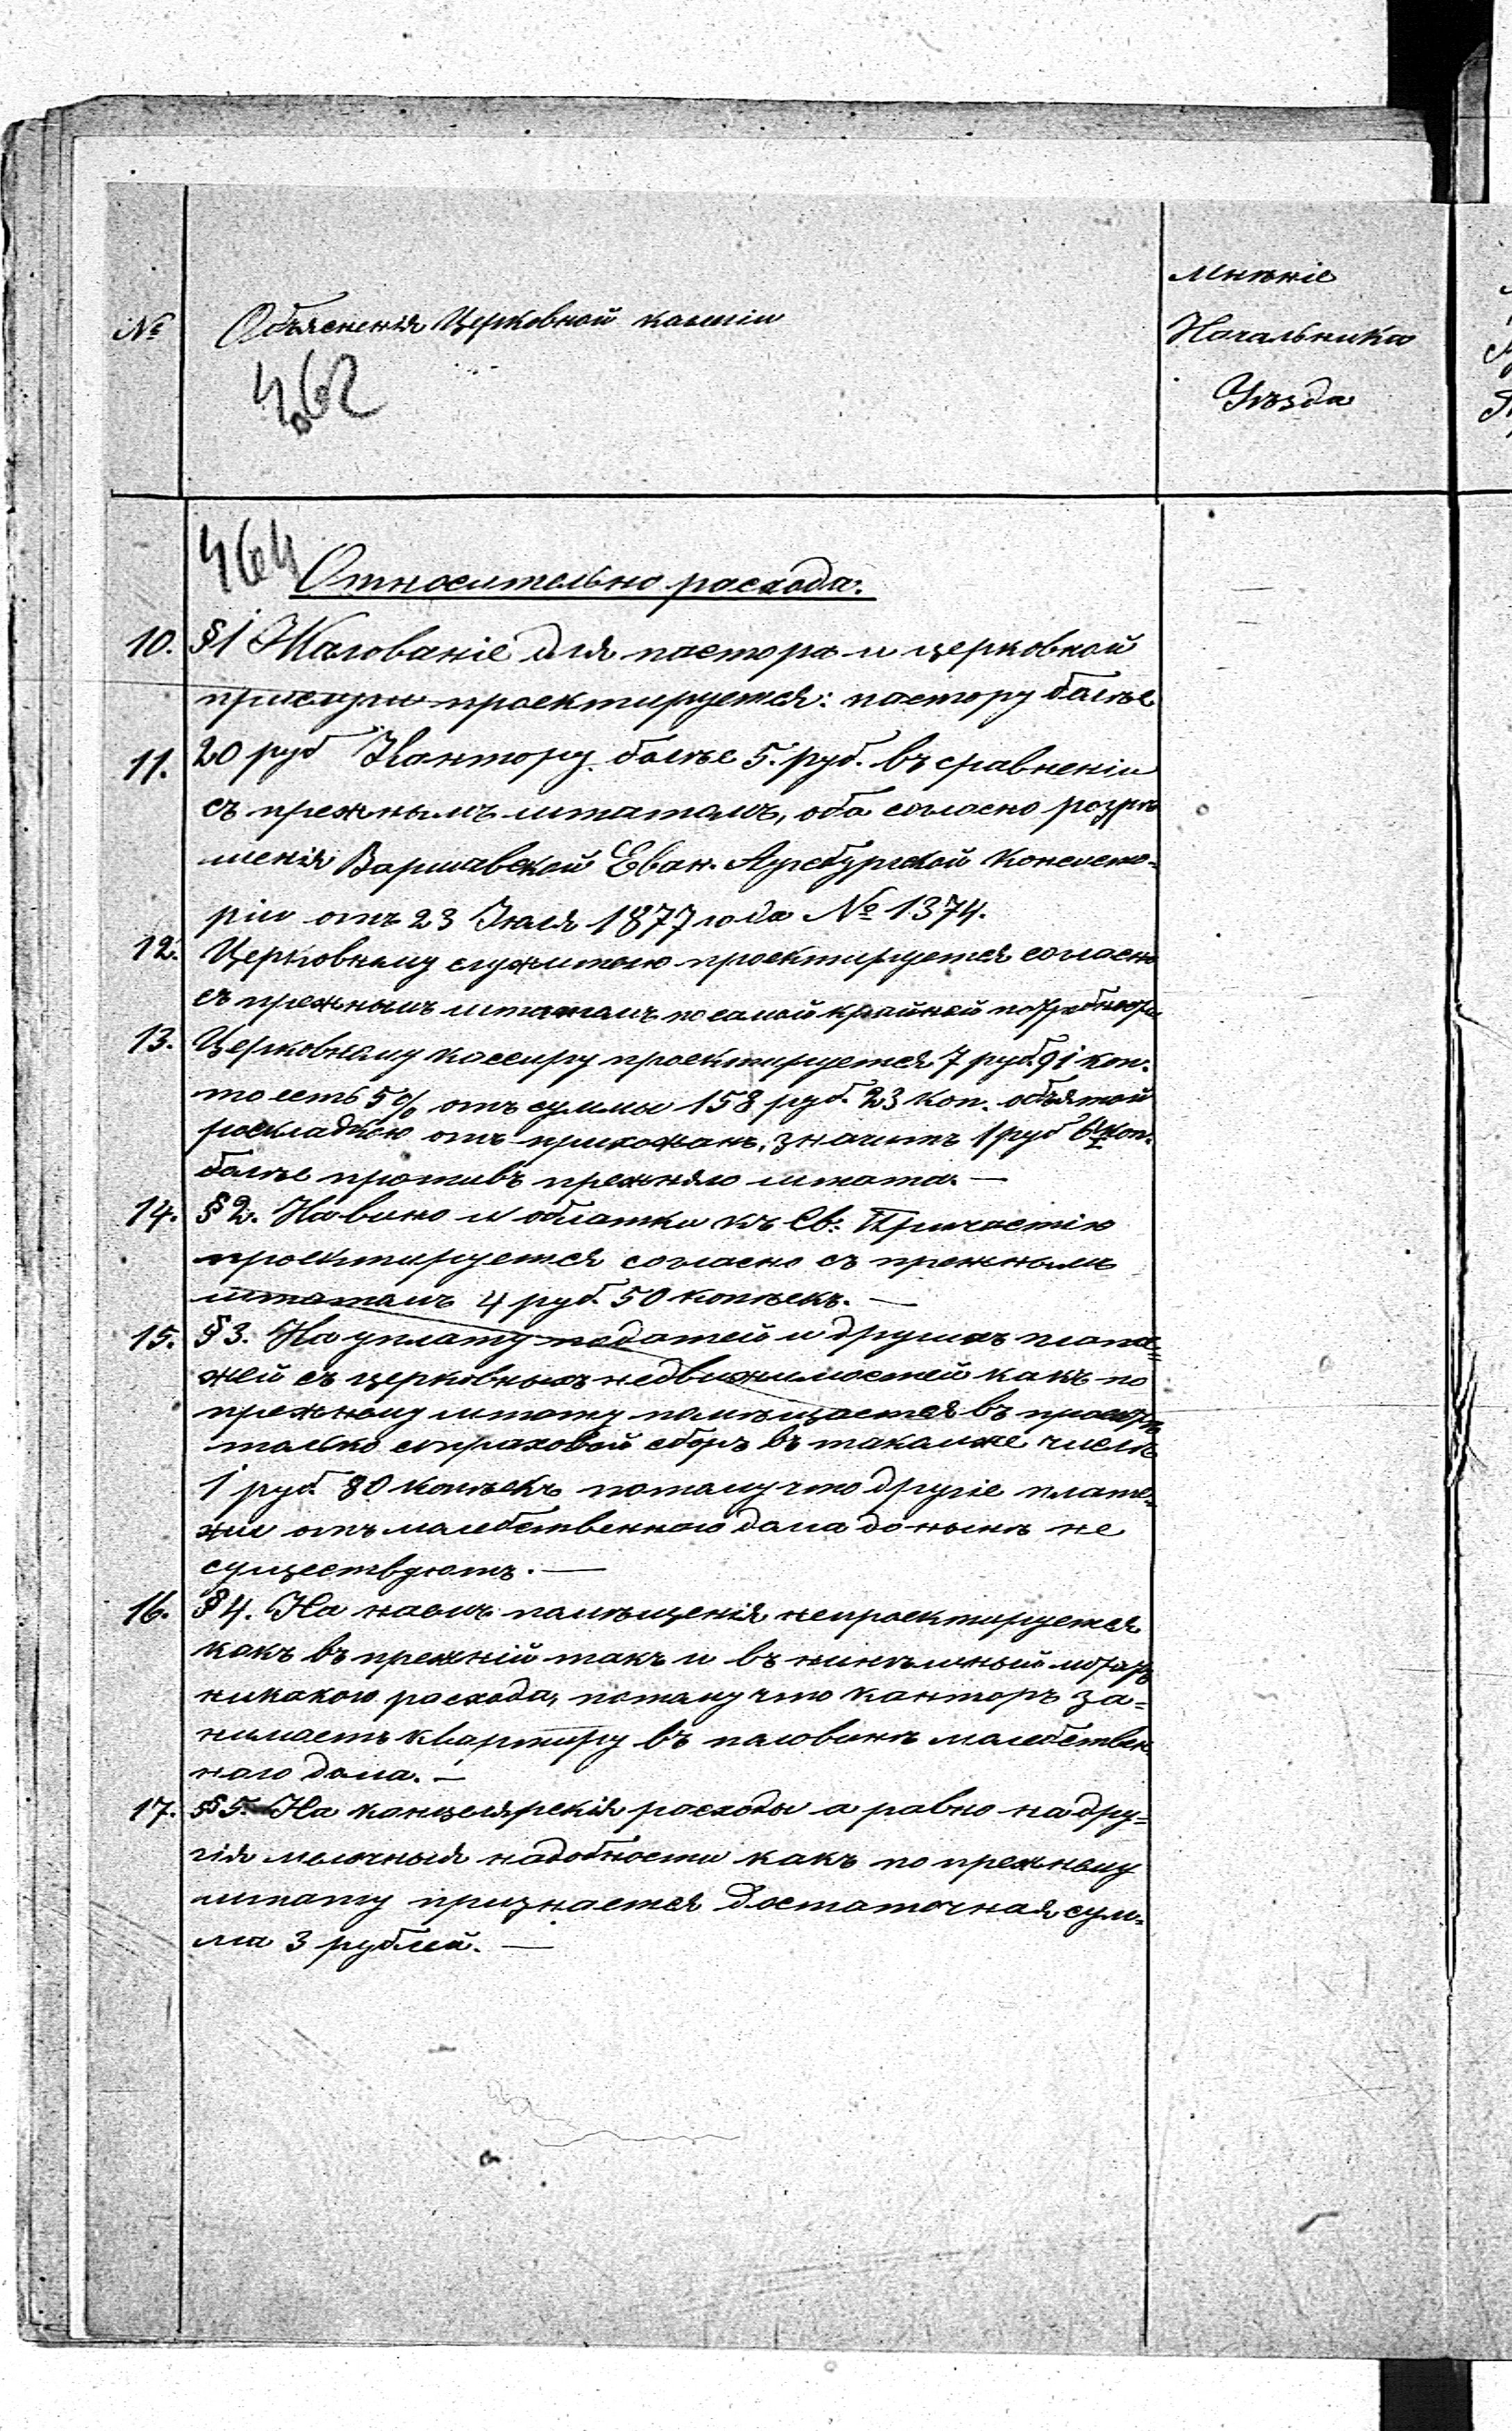 №
Объясненія Церковной коллегіи
Мнѣніе
Начальника
Уѣзда
462
464
Относительно расхода.
10. §1 Жалованіе для пастора и церковной
прислуги проектируется: пастору болѣе
11. 20 руб Кантору болѣе 5. руб. въ сравненіи
съ прежнымъ штатомъ, оба согласно разрѣ
шенія Варшавской Еван. Аугсбургской Консисто-
ріи отъ 23 Іюля 1877 года № 1374.
12. Церковному служителю проектируется согласно
съ прежнымъ штатомъ по самой крайней
13. Церковному кассиру проектируется 7 руб. 91 коп.
то есть 5% отъ суммы 158 руб. 23 коп. объятой
раскладкою отъ прихожанъ, значитъ 1 руб коп.
болѣе противъ прежняго штата. —
14. § 2. На вино и облатки къ Св: Причастію
проектируется согласно съ прежнымъ
штатомъ 4 руб. 50 копѣекъ. —
15. § 3. На уплату податей и другихъ плате=
жей съ церковныхъ недвижимостей какъ по
прежному штату помѣщается въ
только страховой сборъ въ такомже числѣ
1 руб. 80 копѣекъ потому что другіе плате=
жи отъ молебственного дома до нынѣ не
существуютъ. —
16. § 4. На наемъ помѣщенія непроектируется
какъ въ прежній такъ и въ нинѣшный штатъ
никакого расхода, потому что канторъ за=
нимаетъ квартиру въ половинѣ молебствен
ного дома. —
17. § 5. На канцелярскія расходы а равно на дру=
гія мелочныя надобности какъ по прежнему
штату признается достаточная сум=
ма 3 рублей. —